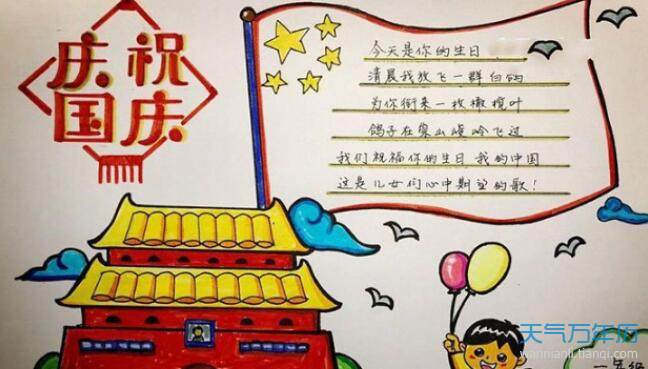 庆祝
国庆
今天是你的生日
清晨我放飞一群白鸽
为你衔来一枚橄榄叶
鸽子在崇山峻岭飞过
我们祝福你的生日 我的中国
这是儿女们心中期望的歌！
天气万年历
wannianli.tianqi.com
一年级